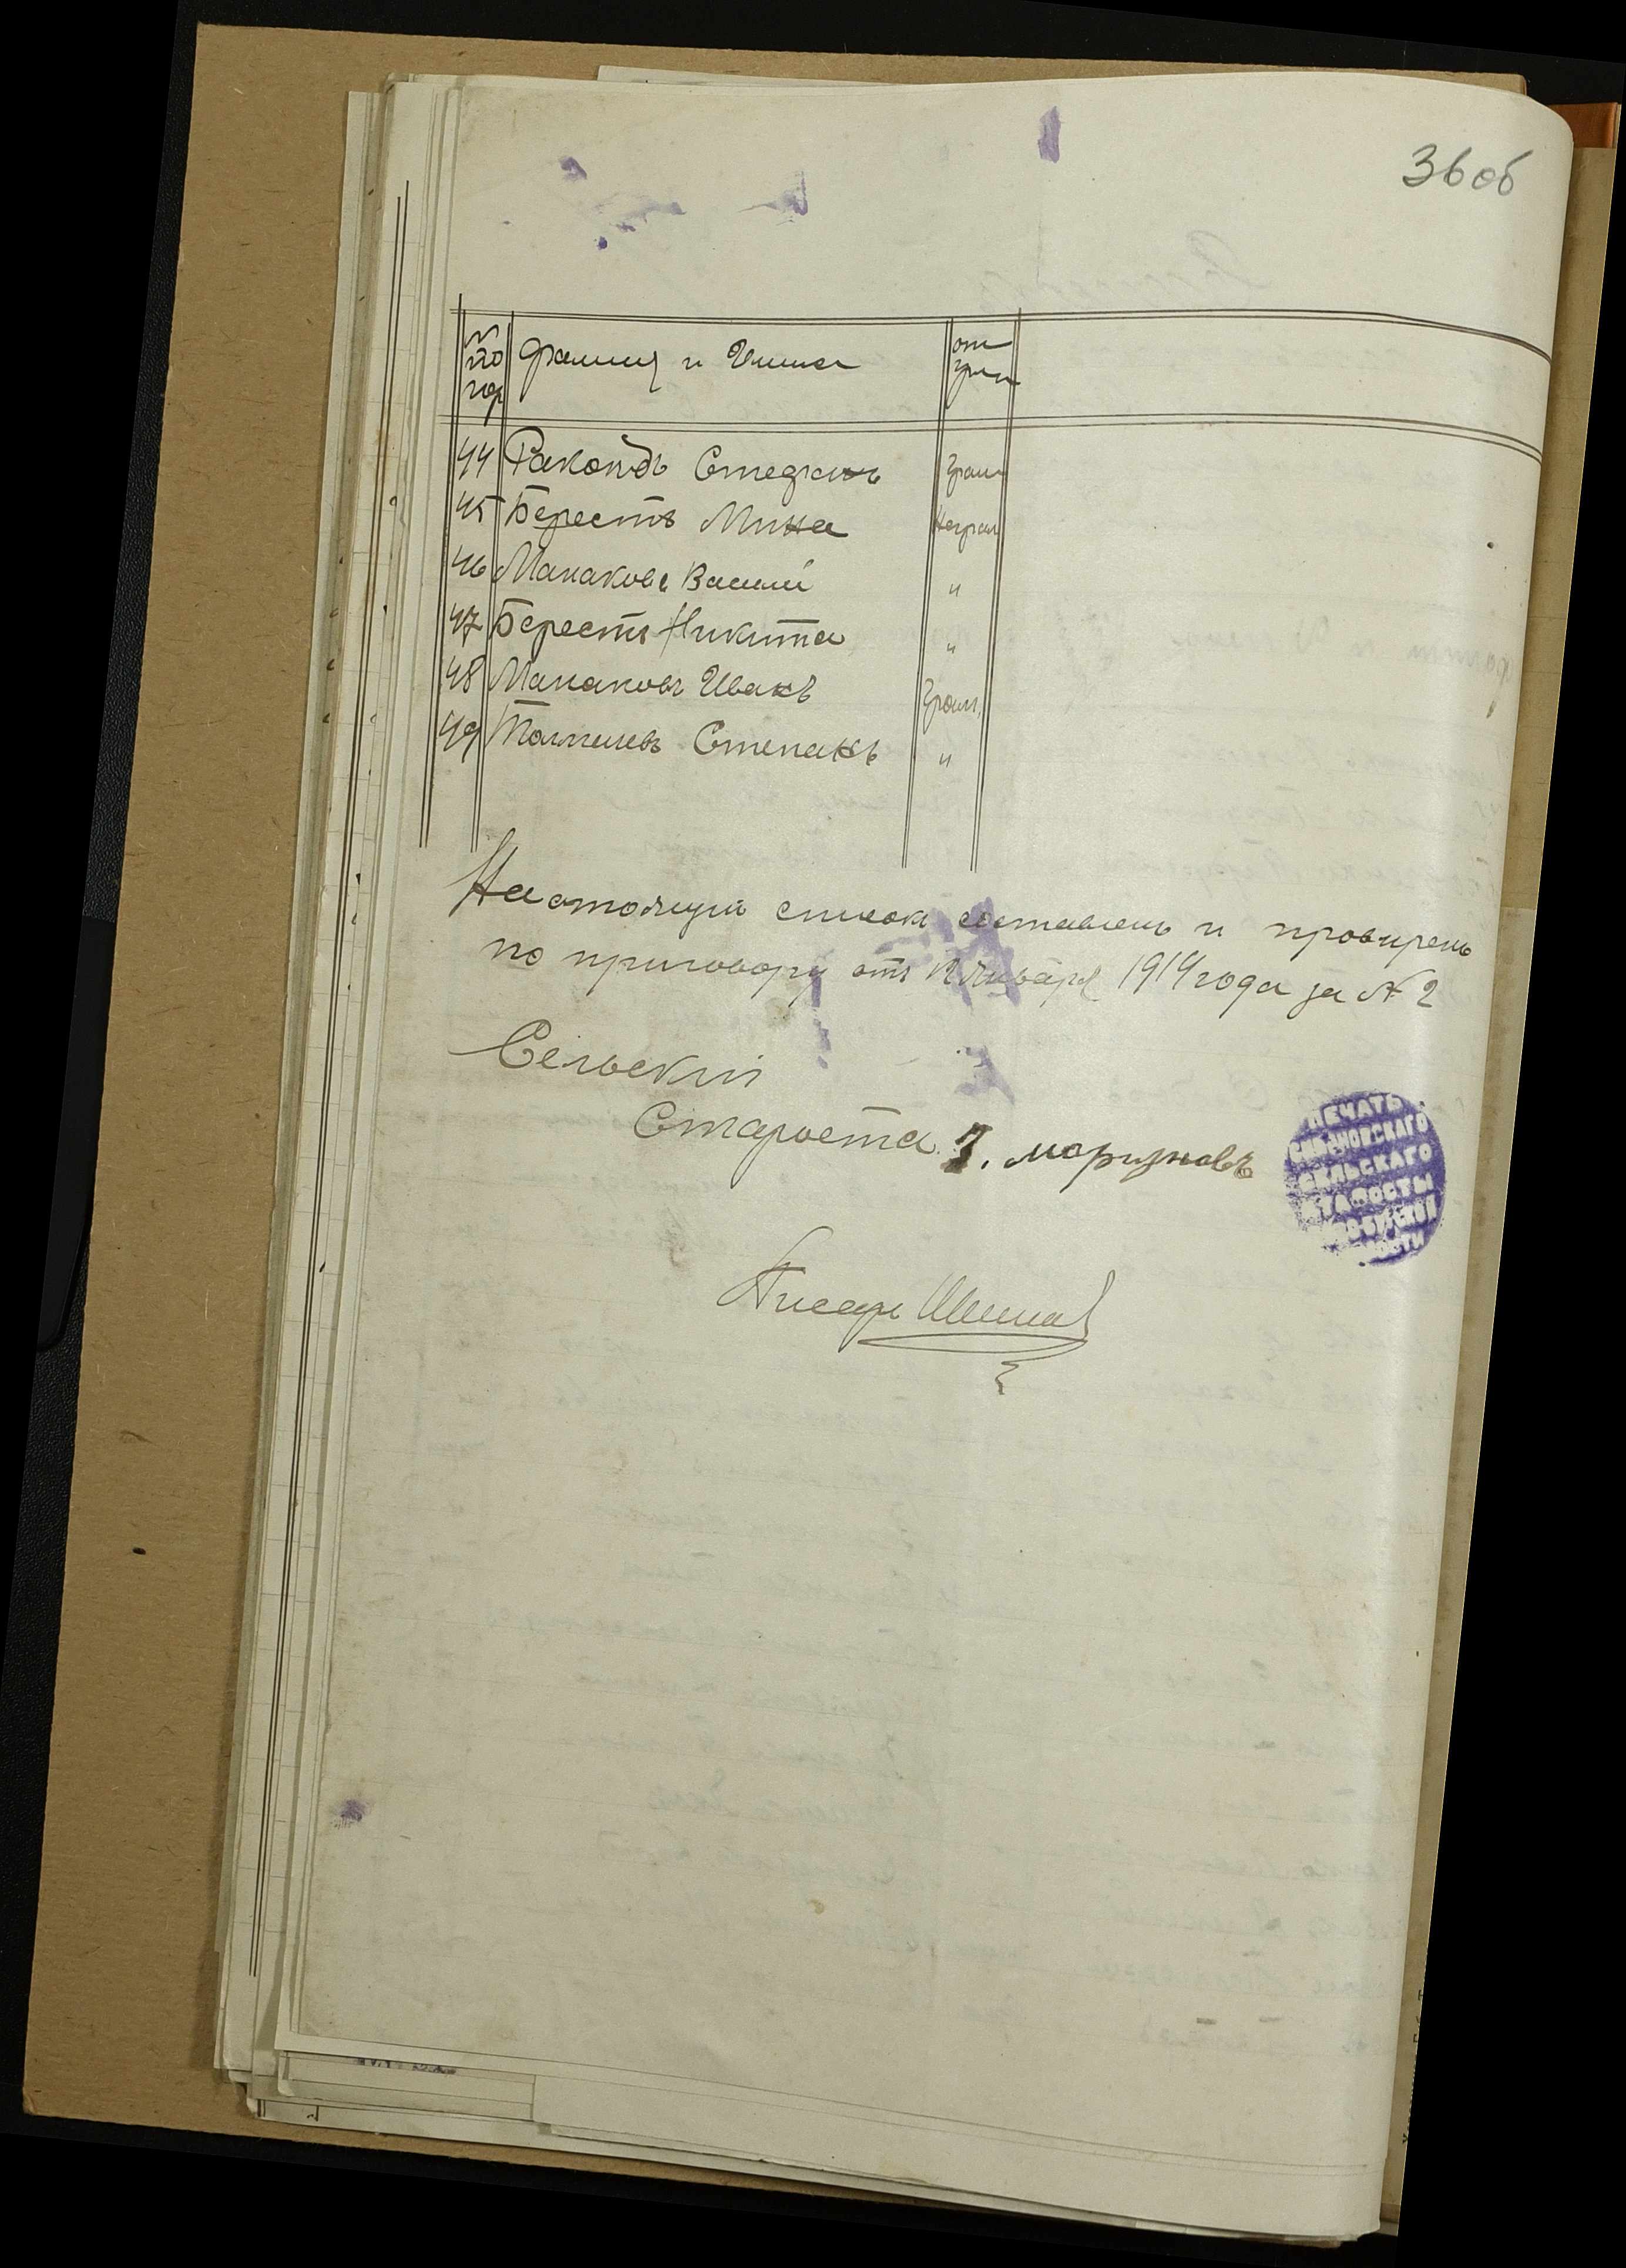 36 об
N по пор
Фамилия и Имина
от грам
44 Ракондъ Стефанъ Грам
45 Берестъ Мина Неграм
46 Манаковъ Василий "
47 Берестъ Никита "
48 Манаковъ Иванъ Грам.
49 Толмачевъ Степанъ "
Настоящий список составленъ и провиренъ
по приговору отъ Января 1914 года за № 2
Сельский
Староста
Писарь
ПЕЧАТЬ
СЕЛЬСКАГО
СТАРОСТЫ